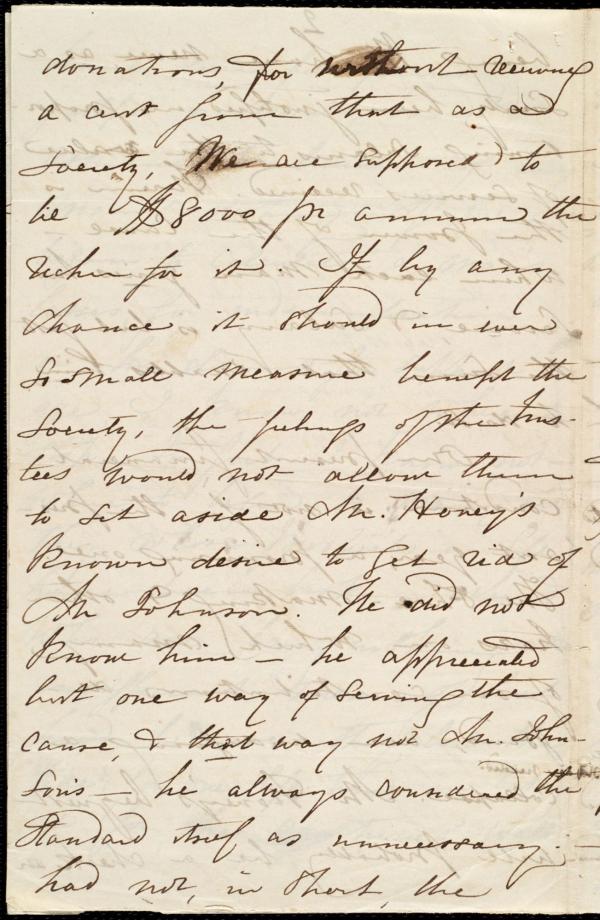 donations, for without receiving
a cent from that as a
Society, We are supposed to
be $8000 pr annum the
richer for it. If by any
chance it should in ever
so small measure benefit the
Society, the feelings of the trus-
tees would not allow them
to set aside Mr. Hovey's
known desire to get rid of
Mr Johnson. He did not
know him — he appreciated
but one way of serving the
cause, & that way not Mr. John-
son's — he always considered the
Standard itself as unnecessary. —
had not, in short, the